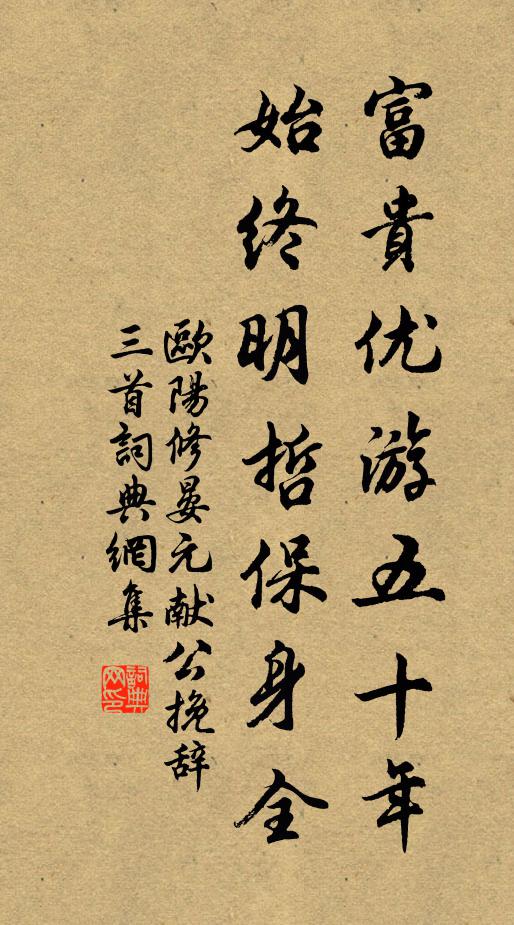 富貴优游五十年
始终明哲保身全
歐陽修晏元献公挽辞
三首詞典網集
詞典
网印